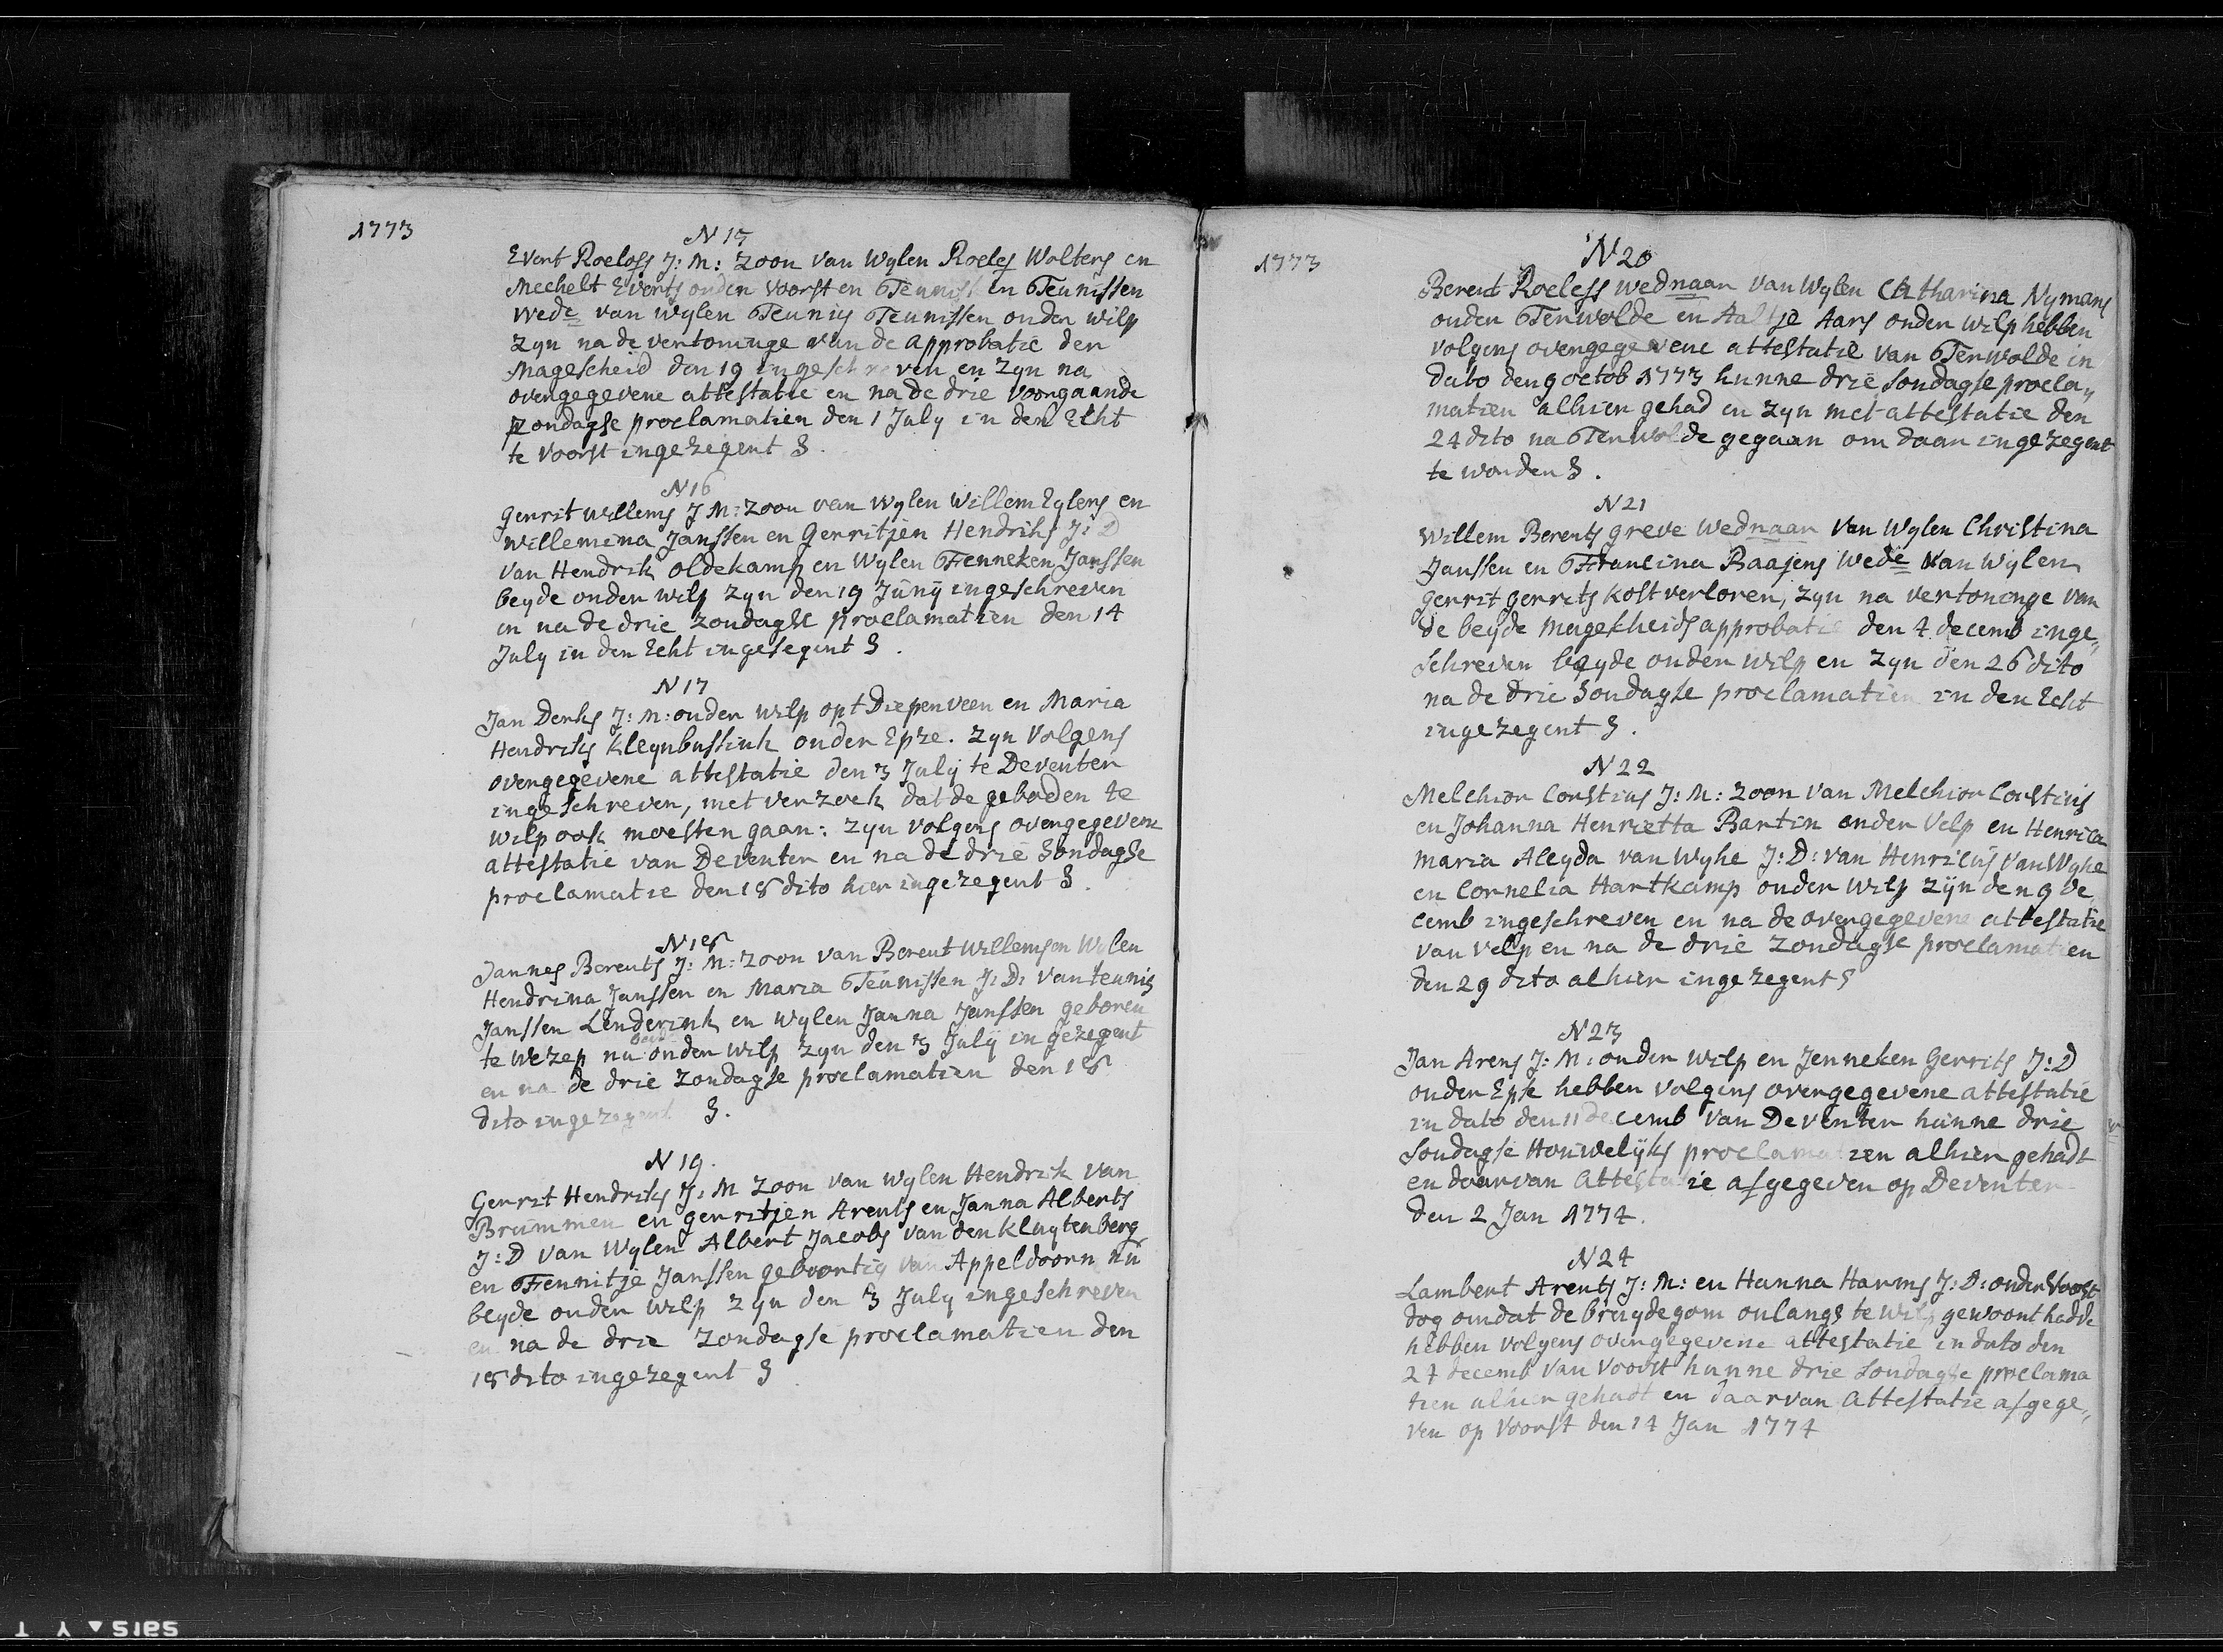 1773
N 15
Evert Roelofs J: M: Zoon van Wylen Roelef Wolters en
Mechelt Everts onder Voorst en Teunis en Teunissen
Wede van wylen Teunis Teunissen onder wilp
Zyn na de vertoninge van de approbatie der
Magescheid den 19 ingeschreven en Zyn na
overgegevene attestatie en na de drie voorgaande
Zondagse proclamatien den 1 July in den Echt
te Voorst ingezegent
N 16
Gerrit Willems J M: Zoon van Wylen Willem Eylers en
Willemina Janssen en Gerritjen Hendriks J: D
van Hendrik Oldekamp en Wylen Fenneken Janssen
beyde onder wilp Zyn den 19 Junÿ ingeschreven
en na de drie Zondagse proclamatien den 14
July in den Echt ingesegent
N 17
Jan Derks J: M: onder wilp opt Diepenveen en Maria
Hendriks Kleynbussink onder Epse. Zyn Volgens
overgegevene attestatie den 3 July te Deventer
ingeschreven, met verzoek dat de geboden te
Wilp ook moesten gaan: Zyn volgens overgegevene
attestatie van Deventer en na de drie Sondagse
proclamatie den 18 dito hier ingezegent
N 18
Jannes Berents J: M: Zoon van Berent Willems en Wylen
Hendrina Janssen en Maria Teunissen J: D: van teunis
Janssen Lenderink en Wylen Janna Janssen geboren
te Wezep nu onder Wilp Zyn den 3 July in gezegent
en na de drie Zondagse proclamatien den 18
dito ingezegent
N 19.
Gerrit Hendriks J: M Zoon van Wylen Hendrik van
Brummen en gerritjen Arents en Janna Alberts
J: D van Wylen Albert Jacobs van den Kluytenberg
en Fennitje Janssen geboortig van Appeldoorn nu
beyde onder Wilp Zyn den 3 July ingeschreven
en na de drie Zondagse proclamatien den
18 dito ingezegent
1773
N 20
Berent Roelefs wednaar van Wylen Catharina Nymans
onder Terwolde en Aaltje Aars onder Wilp hebben
volgens overgegevene attestatie van Terwolde in
dato den 9 octob 1773 hunne drie Sondagse procla„
matien alhier gehad en Zyn met attestatie den
24 dito na Terwolde gegaan om daar ingezegent
te worden
N 21
Willem Berents greve Wednaar van Wylen Christina
Janssen en Francina Baajens Wede van Wylen
Gerrit Gerrits Kostverloren, Zyn na vertoninge van
de beyde Magescheids approbatie den 4 decemb inge„
schreven beyde onder Wilp en Zyn den 26 dito
na de drie Sondagse proclamatien in den Echt
ingezegent
N 22
Melchior Corstius J: M: Zoon van Melchior Corstius
en Johanna Henrietta Bartin onder Velp en Henrica
Maria Aleyda van Wyhe J: D: van Henricus van Wyhe
en Cornelia Hartkamp onder Wilp zyn den 9 de
cemb ingeschreven en na de overgegevene attestatie
van Velp en na de drie Zondagse proclamatien
den 29 dito alhier ingezegent
N 23
Jan Arens J: M: onder Wilp en Jenneken Gerrits J: D
onder Epse hebben volgens overgegevene attestatie
in dato den 11 decemb van Deventer hunne drie
Sondagse Houwelyks proclamatien alhier gehadt
en daarvan Attestatie afgegeven op Deventer
den 2 Jan 1774.
N 24
Lambert Arents J: M: en Hanna Harms J: D: onder Voorst
dog omdat de bruydegom onlangs te Wilp gewoont hadde
hebben volgens overgegevene attestatie in dato den
27 decemb van Voorst hunne drie Sondagse proclama
tien alhier gehadt en daarvan Attestatie afgege„
ven op Voorst den 14 Jan 1774